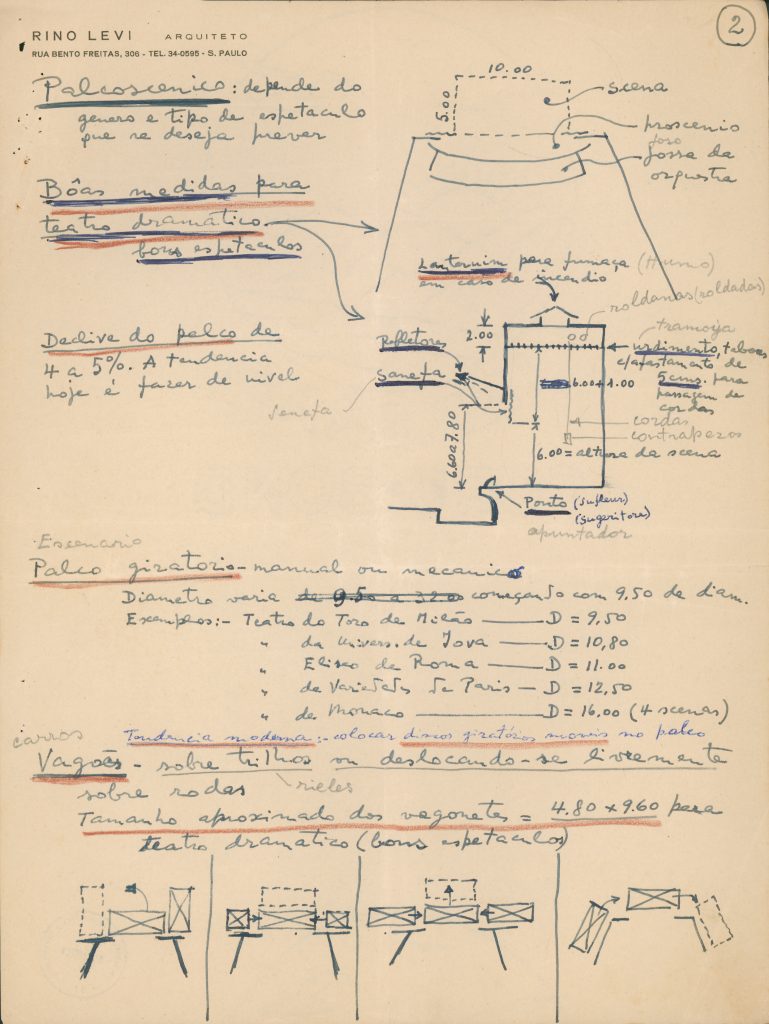 2
RINO LEVI ARQUITETO
RUA BENTO FREITAS, 306 - TEL. 34-0595 - S. PAULO
Palcoscenico: depende do
genero e tipo de espetaculo
que se deseja prever
10.00
5.00
scena
proscenio
foro
fossa da
orquestra
Bôas medidas para
teatro dramatico.
bons espetaculos
Lanternim para fumaça (Humo)
em caso de incendio
roldanas (roldadas)
Declive do palco de
4 a 5%. A tendencia
hoje é fazer de nivel
Refletores
Sanefa
Senefa
2.00
tramoya
urdimento, taboas
c/afastamento de
5 cms. para
passagem de
cordas
6.00+1.00
cordas
contrapezos
6.60 a 7.80
6.00 = altura da scena
Ponto (sufleur)
(sugeritore)
apuntador
Escenario
Palco giratorio - manual ou mecanico
Diametro varia de 9,50 a 32.00 começando com 9,50 de diam.
Exemplos:- Teatro do Toro de Milão — D = 9,50
" da Univers. de Iova — D = 10,80
" Eliseo de Roma — D = 11.00
" de Variedades de Paris — D = 12,50
" de Monaco — D = 16,00 (4 scenas)
Tendencia moderna:- colocar discos giratórios moveis no palco
carros
Vagoẽs - sobre trilhos ou deslocando-se livremente
sobre rodas
rieles
Tamanho aproximado dos vagonetes = 4.80 x 9.60 para
teatro dramatico (bons espetaculos)